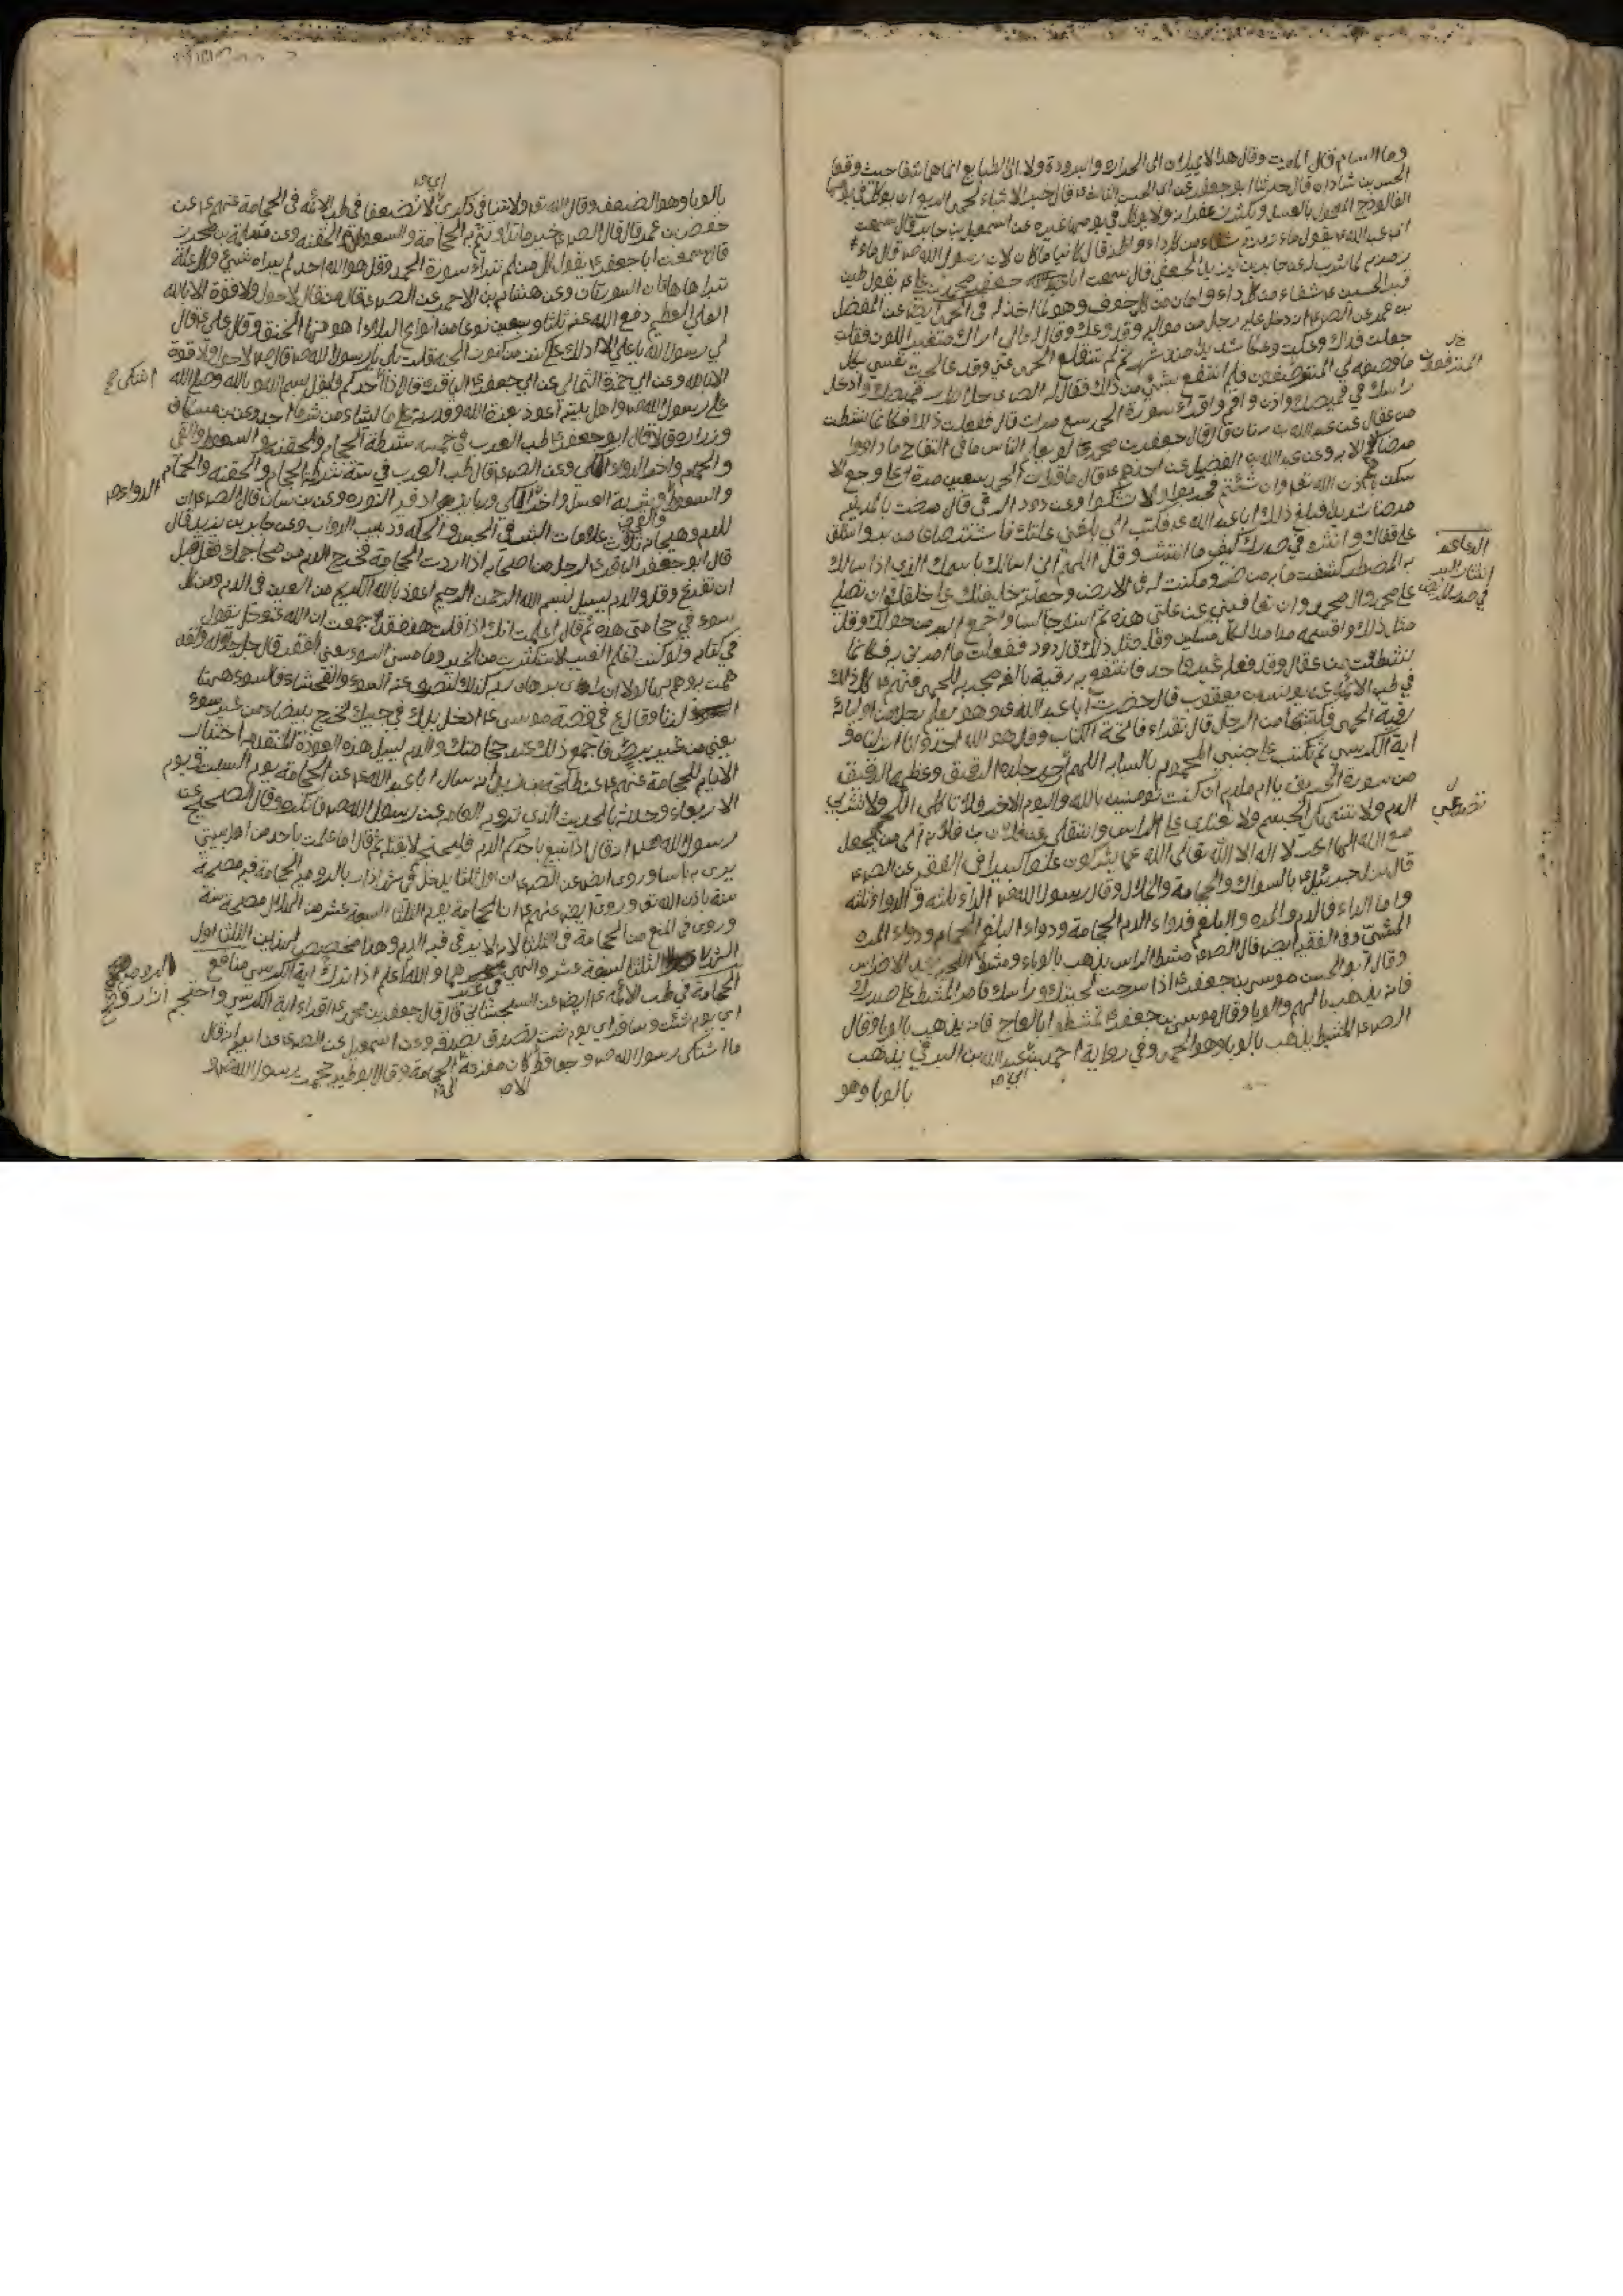 وما السام قال الموت وقال هذا لا يميلان الى الحرارة والبرودة ولا الى الطبايع انما هما شفا حيث وقعا
الحسن بن شاذان قال حدثنا ابو جعفر عن ابي الحسن الثالث قال خير الاشياء لحمى الربع ان يوكل في يومها
الفالوذج المعمول بالعسل ويكثر زعفرانه ولا يوكل في يومها غيره عن اسمعيل بن جابر قال سمعت
ابا عبد الله ع يقول ماء زمزم شفاء من كل داء واظنه قال كائنا ما كان لان رسول الله ص قال ماء
زمزم لما شرب له عن جابر بن يزيد الجعفي قال سمعت ابا جعفر محمد بن علي ع يقول طين
قبر الحسين ع شفاء من كل داء وامان من كل خوف وهو لما اخذ له في الحمى ايضا عن المفضل
بن عمر عن الص ع انه دخل عليه رجل من مواليه وقد وعك وقال له مالي اراك متغير اللون فقلت
جعلت فداك وعكت وعكا شديدا منذ شهر ثم لم تنقلع الحمى عني وقد عالجت نفسي بكل
ما وصفه لي المترفعون فلم انتفع بشي من ذلك فقال له الص ع حل ازرار قميصك وادخل
راسك في قميصك واذن واقم واقرء سورة الحمد سبع مرات قال ففعلت ذلك فكانما نشطت
من عقال عن عبد الله بن سنان قال قال جعفر بن محمد ع لو يعلم الناس ما في التفاح ما داووا
مرضاكم الا به وعن عبد الله بن الفضيل عن احدهم ع قال ما قرات الحمد سبعين مرة على وجع الا
سكن باذن الله تعالى وان شئتم فجربوا ولا تشكوا وعن داود الرقي قال مرضت بالمدينة
مرضا شديدا فبلغ ذلك ابا عبد الله ع فكتب الي بلغني علتك فاشتر صاعا من بر واستلق
على قفاك وانثره في صدرك كيف ما انتثر وقل اللهم اني اسالك باسمك الذي اذا سالك
به المضطر كشفت ما به من ضر ومكنت له في الارض وجعلته خليفتك على خلقك ان تصلي
على محمد وال محمد وان تعافيني من علتي هذه ثم استو جالسا واجمع البر من حولك وقل
مثل ذلك واقسمه مدا مدا لكل مسكين وقل مثل ذلك قال داود ففعلت ما امرني به فكانما
نشطت من عقال وقد فعله غير واحد فانتفع به رقية بالغ مجربة للحمى عنهم ع كل ذلك
في طب الائمة ع يونس بن يعقوب قال حضرت ابا عبد الله ع وهو يعلم رجلا من اوليائه
رقية الحمى فكتبتها من الرجل قال تقراء فاتحة الكتاب وقل هو الله احد وانا انزلناه و
اية الكرسي ثم تكتب على جنبي المحموم بالسبابة اللهم ارحم جلده الرقيق وعظمه الدقيق
من سورة الحريق يا ام ملدم ان كنت تومنين بالله واليوم الاخر فلا تاكلي اللحم ولا تشربي
الدم ولا تنهكي الجسم ولا تصدعي الراس وانتقلي عن فلان بن فلان الى من يجعل
مع الله الها اخر لا اله الا الله تعالى الله عما يشركون علوا كبيرا في الفقيه عن الص ع
قال نزل جبرئيل ع بالسواك والحجامة والخلال وقال رسول الله ص الداء ثلثه والدواء ثلثه
واما الداء فالدم والمره والبلغم فدواء الدم الحجامة ودواء البلغم الحمام ودواء المره
المشي وفي الفقيه ايضا قال الص ع مشط الراس يذهب بالوباء ومشط اللحية يشد الاضراس
وقال ابو الحسن موسى بن جعفر ع اذا سرحت لحيتك وراسك فامر المشط على صدرك
فانه يذهب بالهم والوبا وقال موسى بن جعفر ع تمشطوا بالعاج فانه يذهب بالوبا وقال
الص ع المشط يذهب بالوبا وهو الحمى وفي رواية احمد بن ابي عبد الله البرقي يذهب
بالوبا وهو
المترفعون
الدعا عند
انتثار البر
في صدر المريض
تصدعي
بالوبا وهو الضعف وقال الله تعالى ولا تنيا في ذكري اي لا تضعفا في طب الائمة في الحجامة عنهم ع عن
حفص بن عمر قال قال الص ع خير ما تداويتم به الحجامة والسعوط والحقنه وعن
قال سمعت ابا جعفر ع يقول كل من لم تبراه سورة الحمد وقل هو الله احد لم يبراه شي وكل علة
تبراها هاتان السورتان وعن هشام بن الاحمر عن الص ع قال من قال لا حول ولا قوة الا بالله
العلي العظيم دفع الله عنه ثلثا وسبعين نوعا من انواع البلاء اهونها الخنق وقال علي ع قال
لي رسول الله يا علي الا ادلك على كنز من كنوز الجنه قلت بلى يا رسول الله ص قال ص لا حول ولا قوة
الا بالله وعن ابي حمزة الثمالي عن ابي جعفر ع الباقر قال اذا احدكم فليقل بسم الله وبالله وصلى الله
على رسول الله ص واهل بيته اعوذ بعزة الله وقدرته على ما يشاء من شر ما اجد وعن بن مسكان
وزراره قالا قال ابو جعفر ع طب العرب في خمسه شرطة الحجام والحقنه والسعوط والقي
والحمام واخر الدواء الكي وعن الص ع قال طب العرب في ستة شرطة الحجام والحقنه والحمام
والسعوط والقي وشربة العسل واخر الكي وربما يزاد فيه النوره وعن بن سنان قال الص ع ان
للدم وهيجانه ثلاث علامات البثر في الجسد والحكه ودبيب الدواب وعن جابر بن يزيد قال
قال ابو جعفر الباقر ع لرجل من اصحابه اذا اردت الحجامة فخرج الدم من محاجمك فقل قبل
ان تفرغ وقل والدم يسيل بسم الله الرحمن الرحيم اعوذ بالله الكريم من العين في الدم ومن كل
سوء في حجامتي هذه ثم قال اعلمت انك اذا قلت هذا فقد جمعت ان الله عز وجل يقول
في كتابه ولو كنت اعلم الغيب لاستكثرت من الخير وما مسني السوء يعني الفقر قال جل جلاله ولقد
همت به وهم بها لولا ان راى برهان ربه كذلك لنصرف عنه السوء والفحشاء فالسوء ههنا
الزنا وقال ع في قصة موسى ع ادخل يدك في جيبك تخرج بيضاء من غير سوء
يعني من غير برص فاجمع ذلك عند حجامتك والدم يسيل هذه العوذة المتقدمه اختيار
الايام للحجامة عنهم ع عن طلحة بن زيد انه سال ابا عبد الله ع عن الحجامة يوم السبت ويوم
الاربعاء وحدثه بالحديث الذي ترويه العامه عن رسول الله ص فانكره وقال الصحيح عن
رسول الله ص انه قال اذا تبيغ باحدكم الدم فليحتجم لا يقتله ثم قال ما علمت باحد من اهل بيتي
يرى به باسا وروي ايض عن الص ع ان اول ثلثا يدخل في شهر اذار بالروميه الحجامة فيه مصحة
سنة باذن الله تع وروي ايض عنهم ع ان الحجامة يوم الثلثا لسبعة عشر من الهلال مصحة سنة
وروي في المنع من الحجامة في الثلثا لانه لا يرقى فيه الدم وهذا مخصص
الثلثا لسبعة عشر والله اعلم اذا اية الكرسي منافع
الحجامة في طب الائمة ع ايض عن السجستاني قال قال جعفر بن محمد ع اقراء اية الكرسي واحتجم
اي يوم شئت وسافر اي يوم شئت وتصدق بصدقه وعن اسمعيل عن الص ع عن ابيه انه قال
ما اشتكى رسول الله ص وجعا قط الا كان مفزعه الى الحجامة وقال ابو طيبه حجمت رسول الله ص و
اشتكى
الدواء